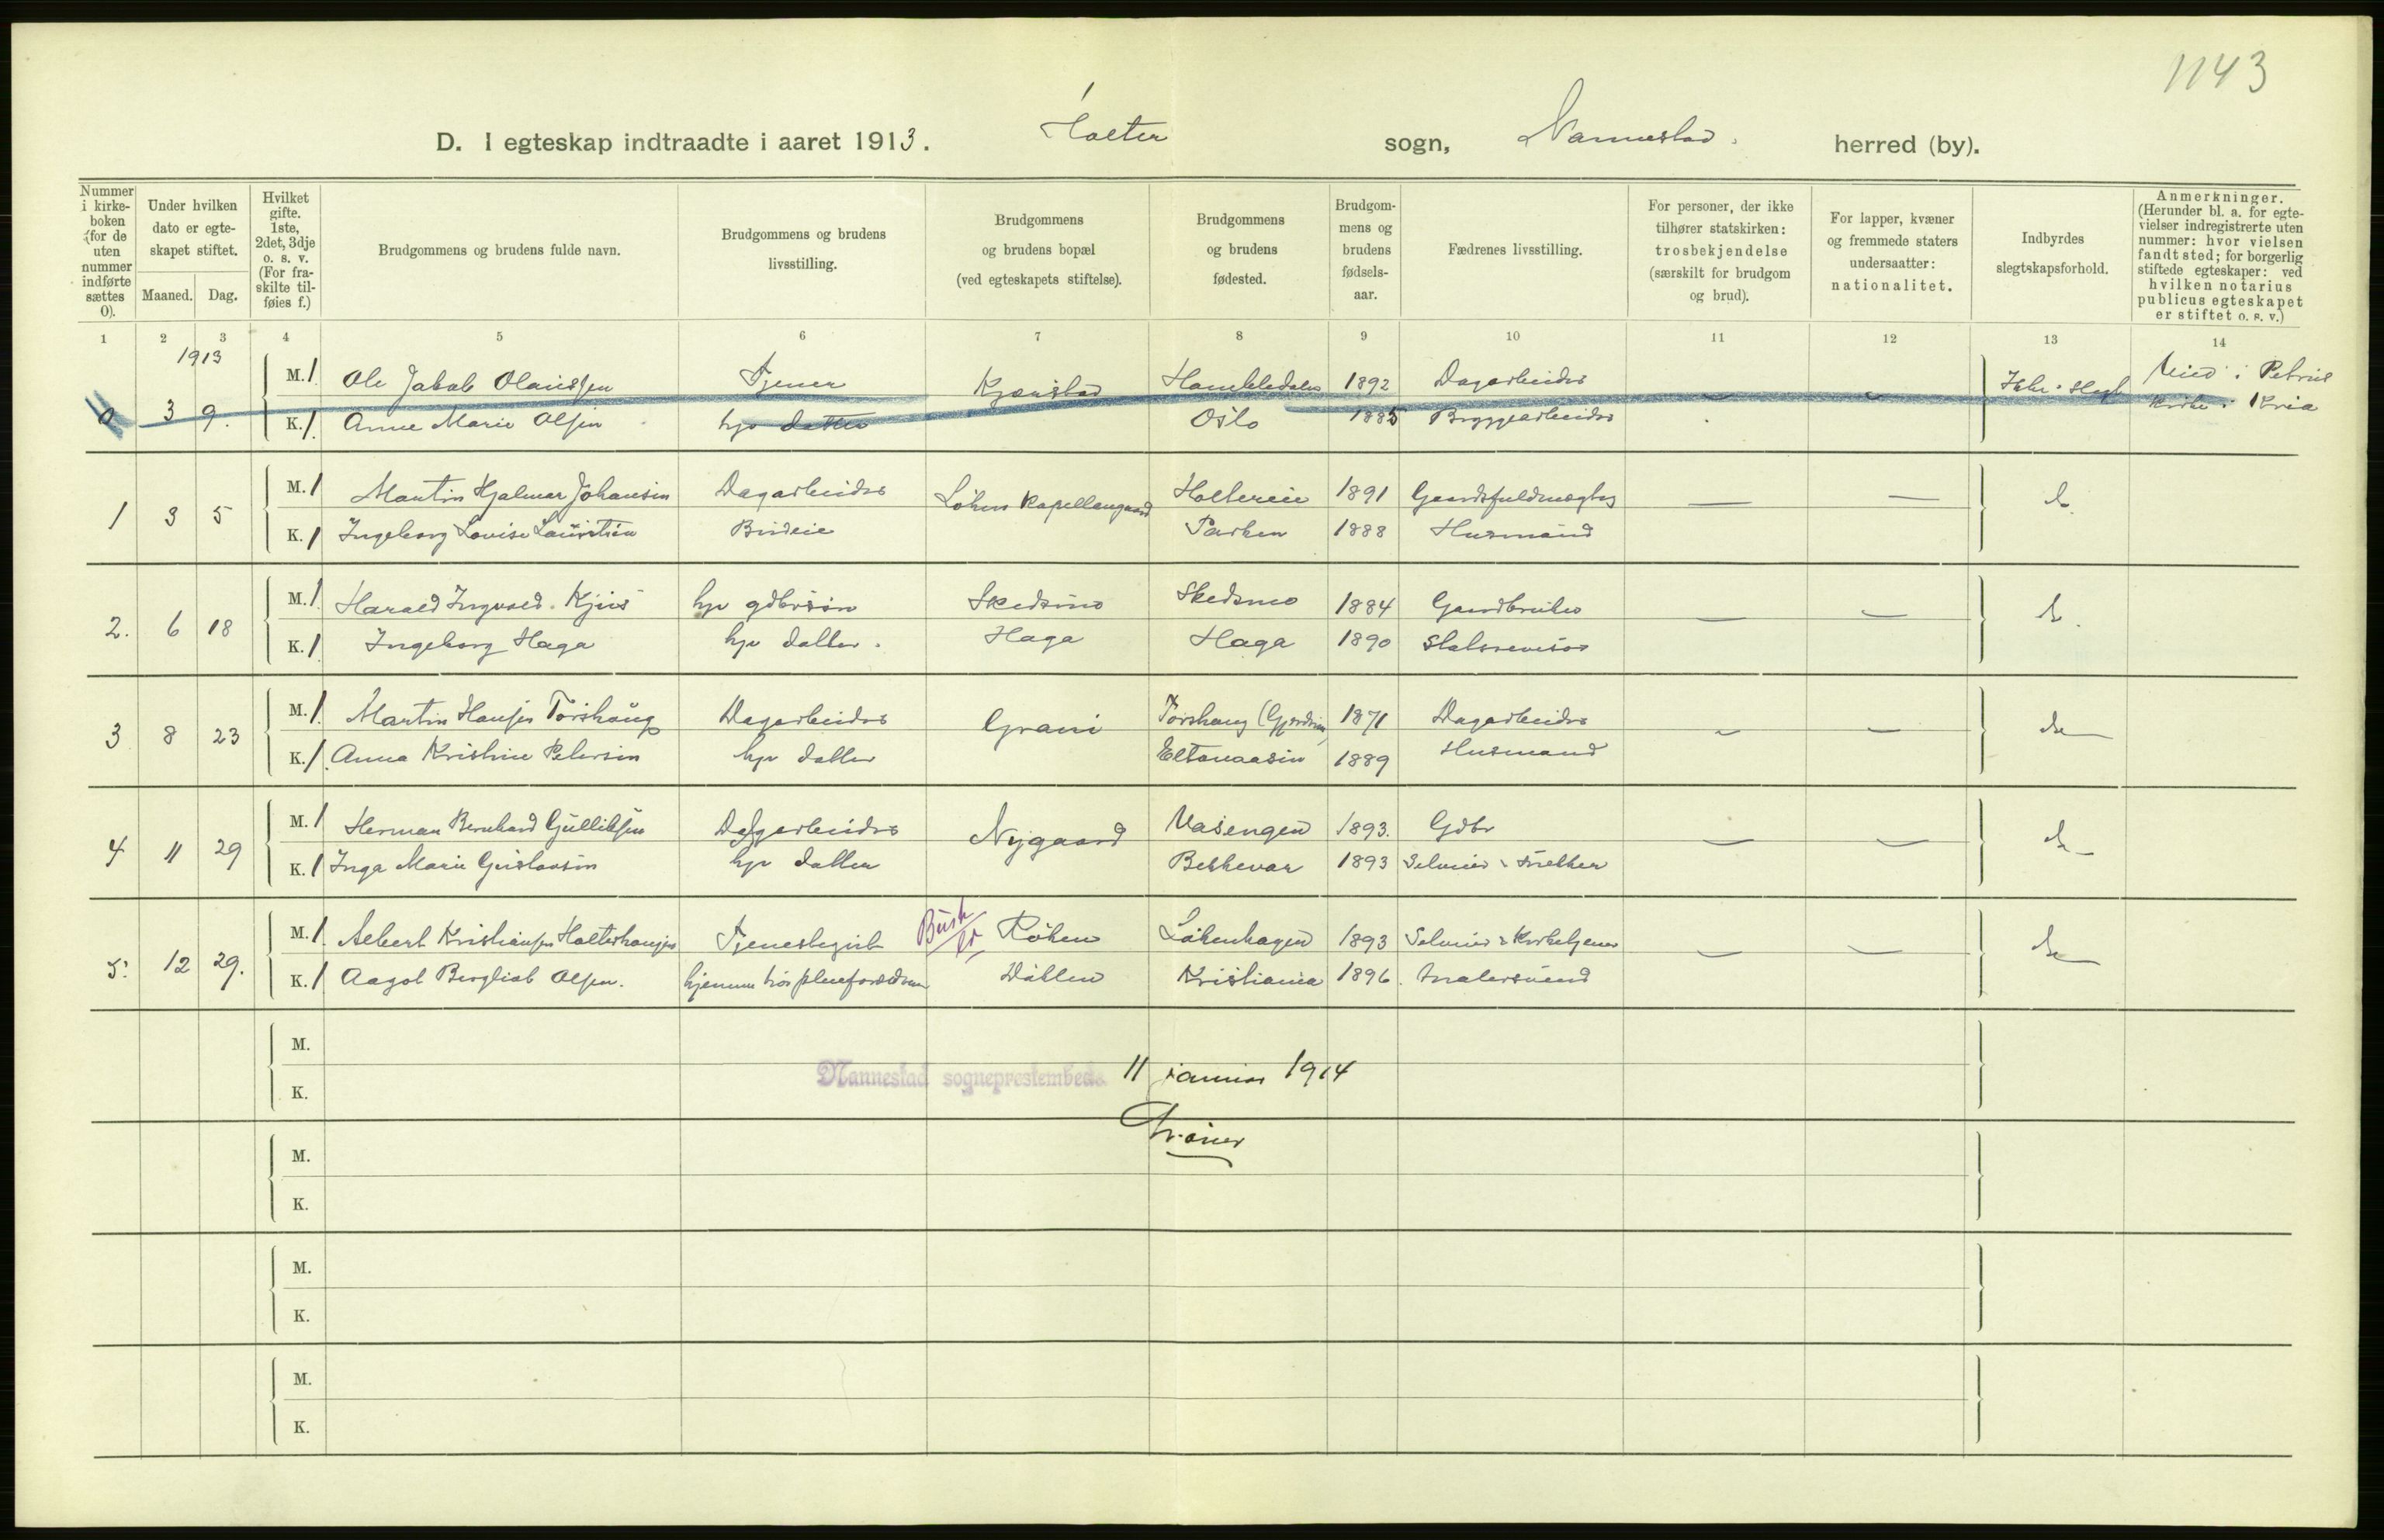 1143
D. I egteskap indtraadte i aaret 1913. Holter sogn, Nannestad. herred (by).
Nummer i kirkeboken (for de uten nummer indførte sættes 0).
Under hvilken dato er egteskapet stiftet.
Maaned. Dag.
Hvilket gifte. 1ste, 2det, 3dje o. s. v. (For fraskilte tilføies f.)
Brudgommens og brudens fulde navn.
Brudgommens og brudens livsstilling.
Brudgommens og brudens bopæl (ved egteskapets stiftelse).
Brudgommens og brudens fødested.
Brudgommens og brudens fødselsaar.
Fædrenes livsstilling.
For personer, der ikke tilhører statskirken: trosbekjendelse (særskilt for brudgom og brud).
For lapper, kvæner og fremmede staters undersaatter: nationalitet.
Indbyrdes slegtskapsforhold.
Anmerkninger. (Herunder bl. a. for egtevielser indregistrerte uten nummer: hvor vielsen fandt sted; for borgerlig stiftede egteskaper: ved hvilken notarius publicus egteskapet er stiftet o. s. v.)
1 2 3 4 5 6 7 8 9 10 11 12 13 14
1913
M. 1 Ole Jakob Olaussen Tjener Kjønstad 1892 Dagarbeider Viet i
0 3 9. K. 1 Anne Marie Olsen hjv datter Oslo 1885 Bryggearbeider Kirke i Kria
M. 1 Martin Hjalmar Johansen Dagarbeider Løken Kapellangaard Holtereie 1891 Gaardsfuldmægtig — —
1 3 5 K. 1 Ingeborg Lovise Budeie Parken 1888 Husmand
M. 1 Harald Ingvald Kjus hjv gdbrsøn Skedsmo Skedsmo 1884 Gaardbruker — —
2. 6 18 K. 1 Ingeborg Haga hjv datter. Haga Haga 1890 Statsrevisor
M. 1 Martin Hansen Torshaug Dagarbeider Grani Torshaug 1871 Dagarbeider — —
3 8 23 K. 1 Anna Kristine Petersen hjv datter 1889 Husmand
M. 1 Herman Bernhard Gulliksen Dagarbeider Nygaard Vasengen 1893. Gdbr — —
4 11 29 K. 1 Inga Marie Gustavsen hjv datter Bekkevar 1893 Selveier & snekker
M. 1 Albert Kristiansen Holterhaugen Tjenestegut Løken Løkenhagen 1893 Selveier & Kirketjener — —
5. 12 29. K. 1 Aagot Bergliot Olsen. hjemme hos pleieforældrene Døhlen Kristiania 1896. Malersvend
M.
K.
Nannestad sogneprestembede 11 januar 1914
M.
K.
M.
K.
M.
K.